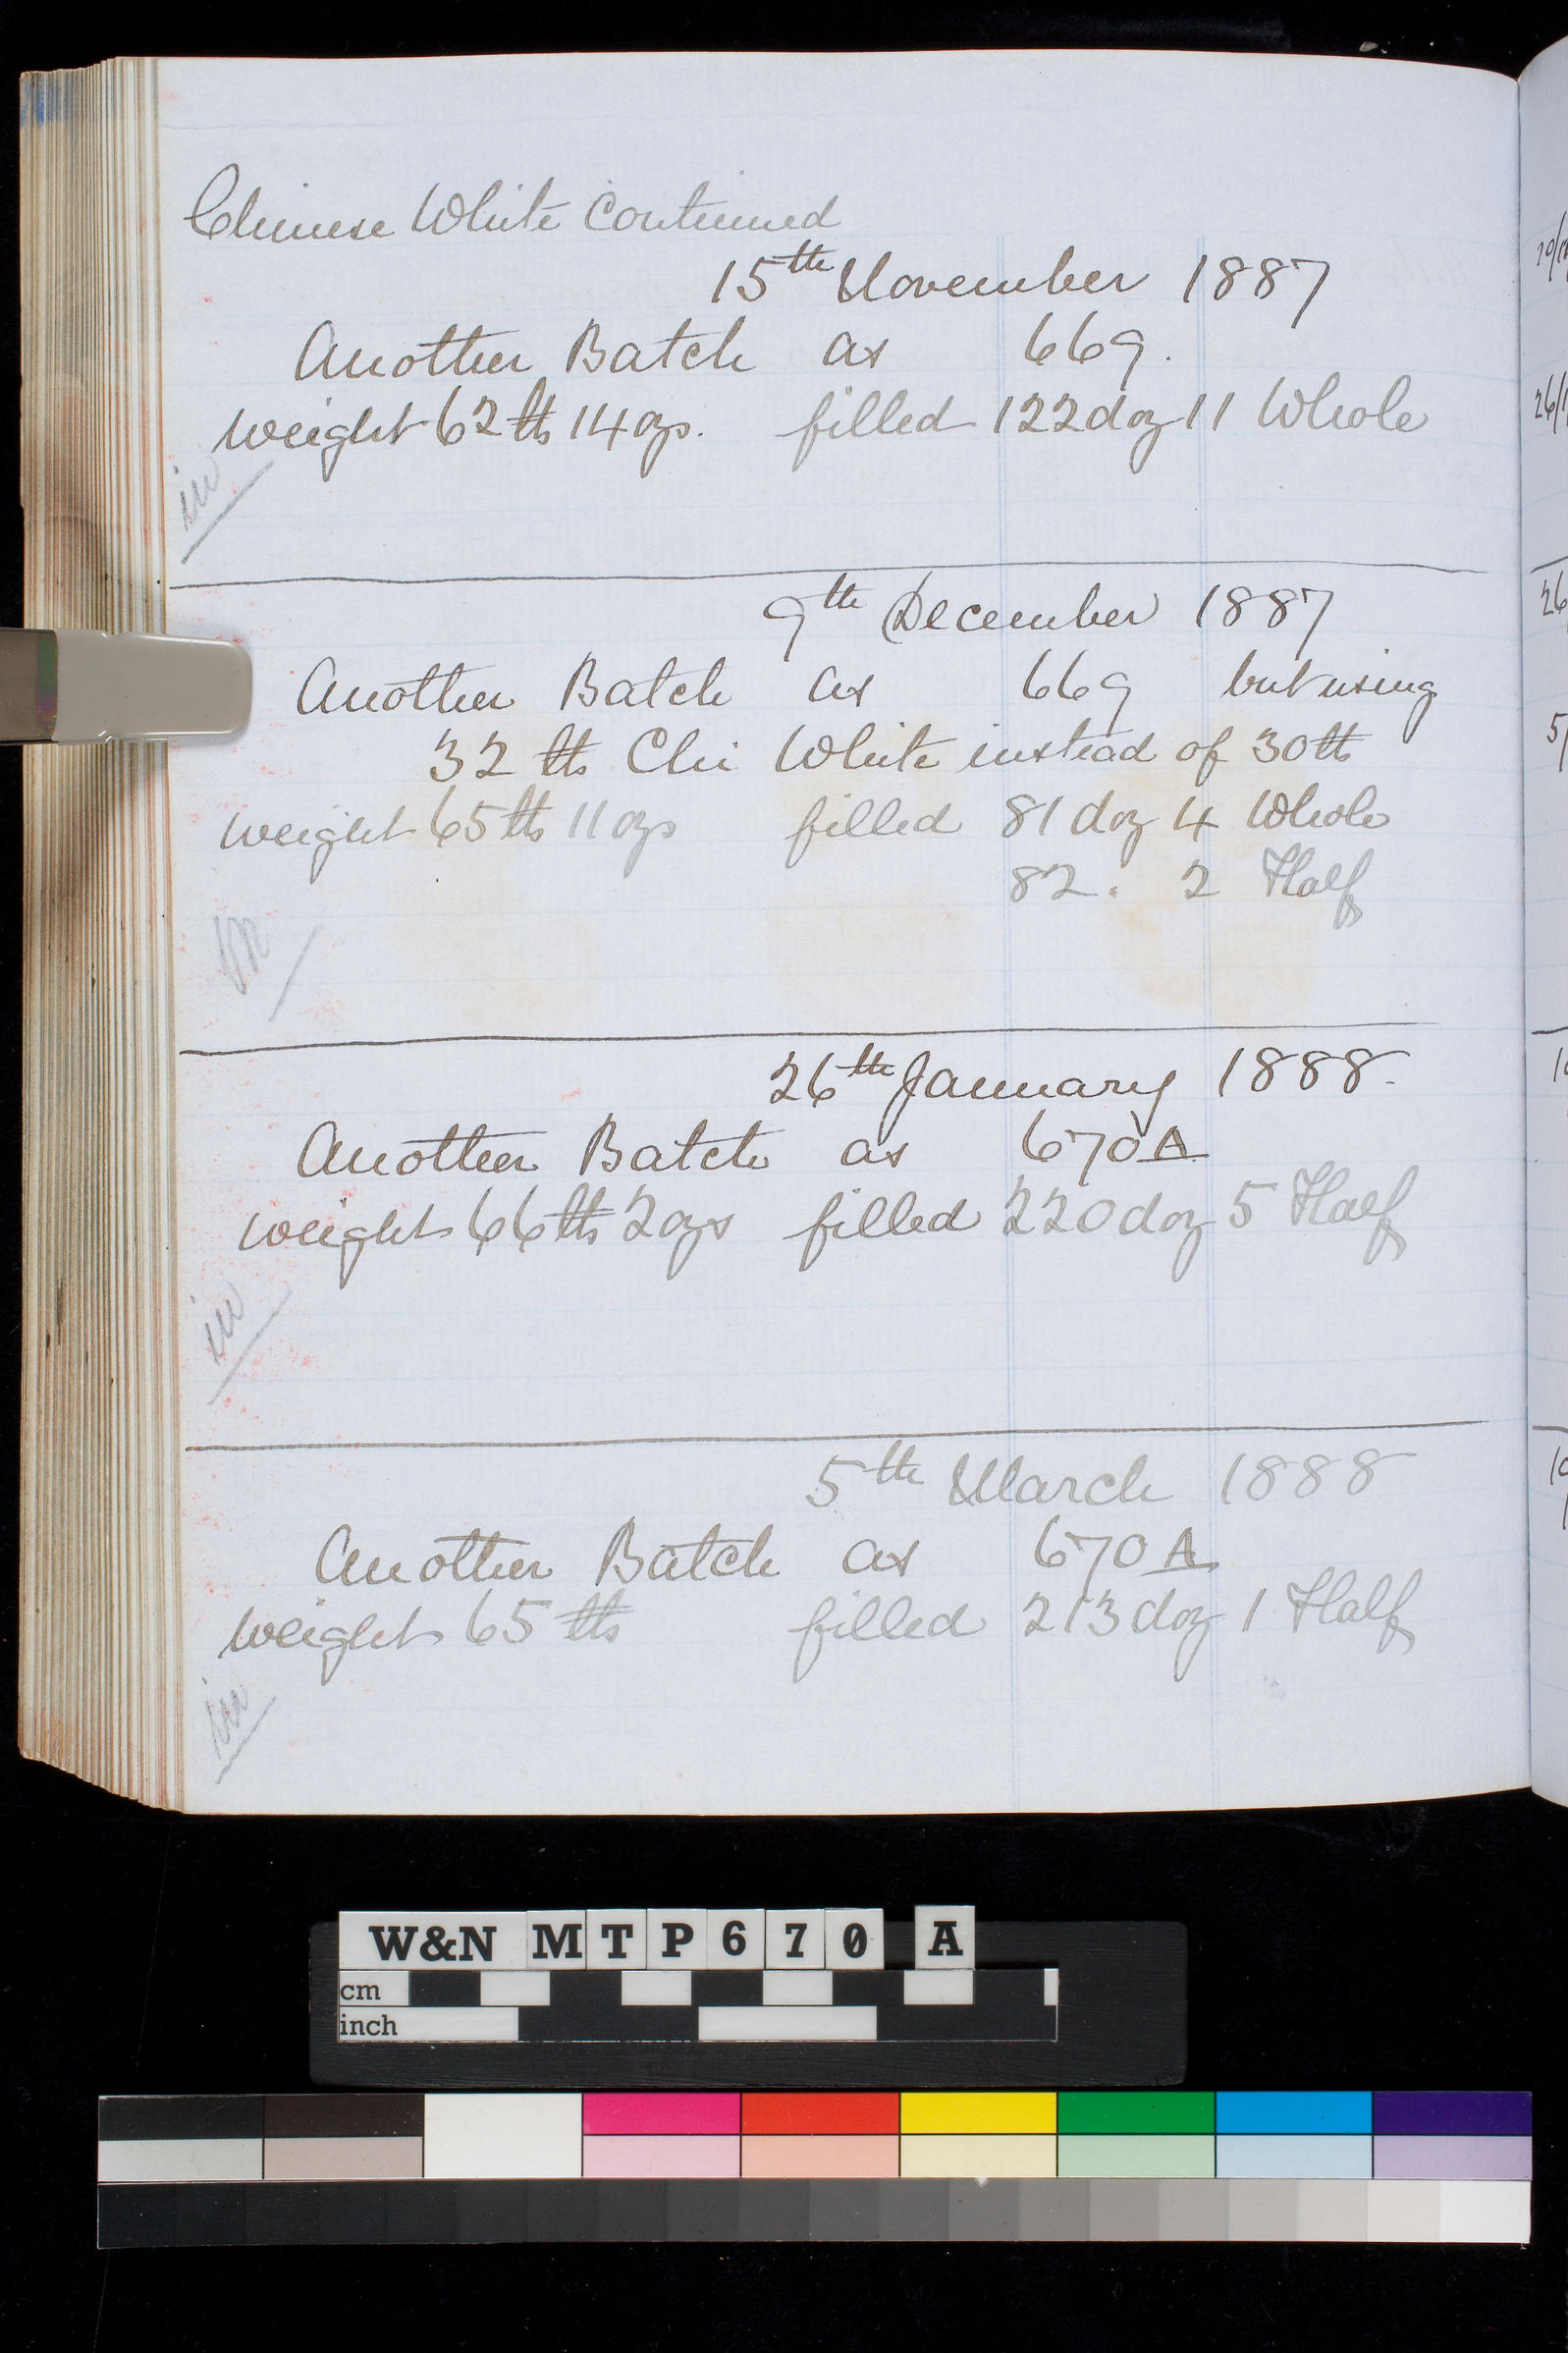 Chinese White Continued
15th November 1887
Another Batch as 669.
weight 62 lbs 14 ozs. filled 122 doz 11 Whole
in
9th December 1887
Another Batch as 669 but using
32 lbs Chi White instead of 30 lbs
weight 65 lbs 11 ozs filled 81 doz 4 Whole
82 . 2 Half
in
26th January 1888.
Another Batch as 670A
weight 66 lbs 2 ozs filled 220 doz 5 Half
in
5th March 1888
Another Batch as 670A
weight 65 lbs filled 213 doz 1 Half
in
W&N MTP670 A
cm
inch